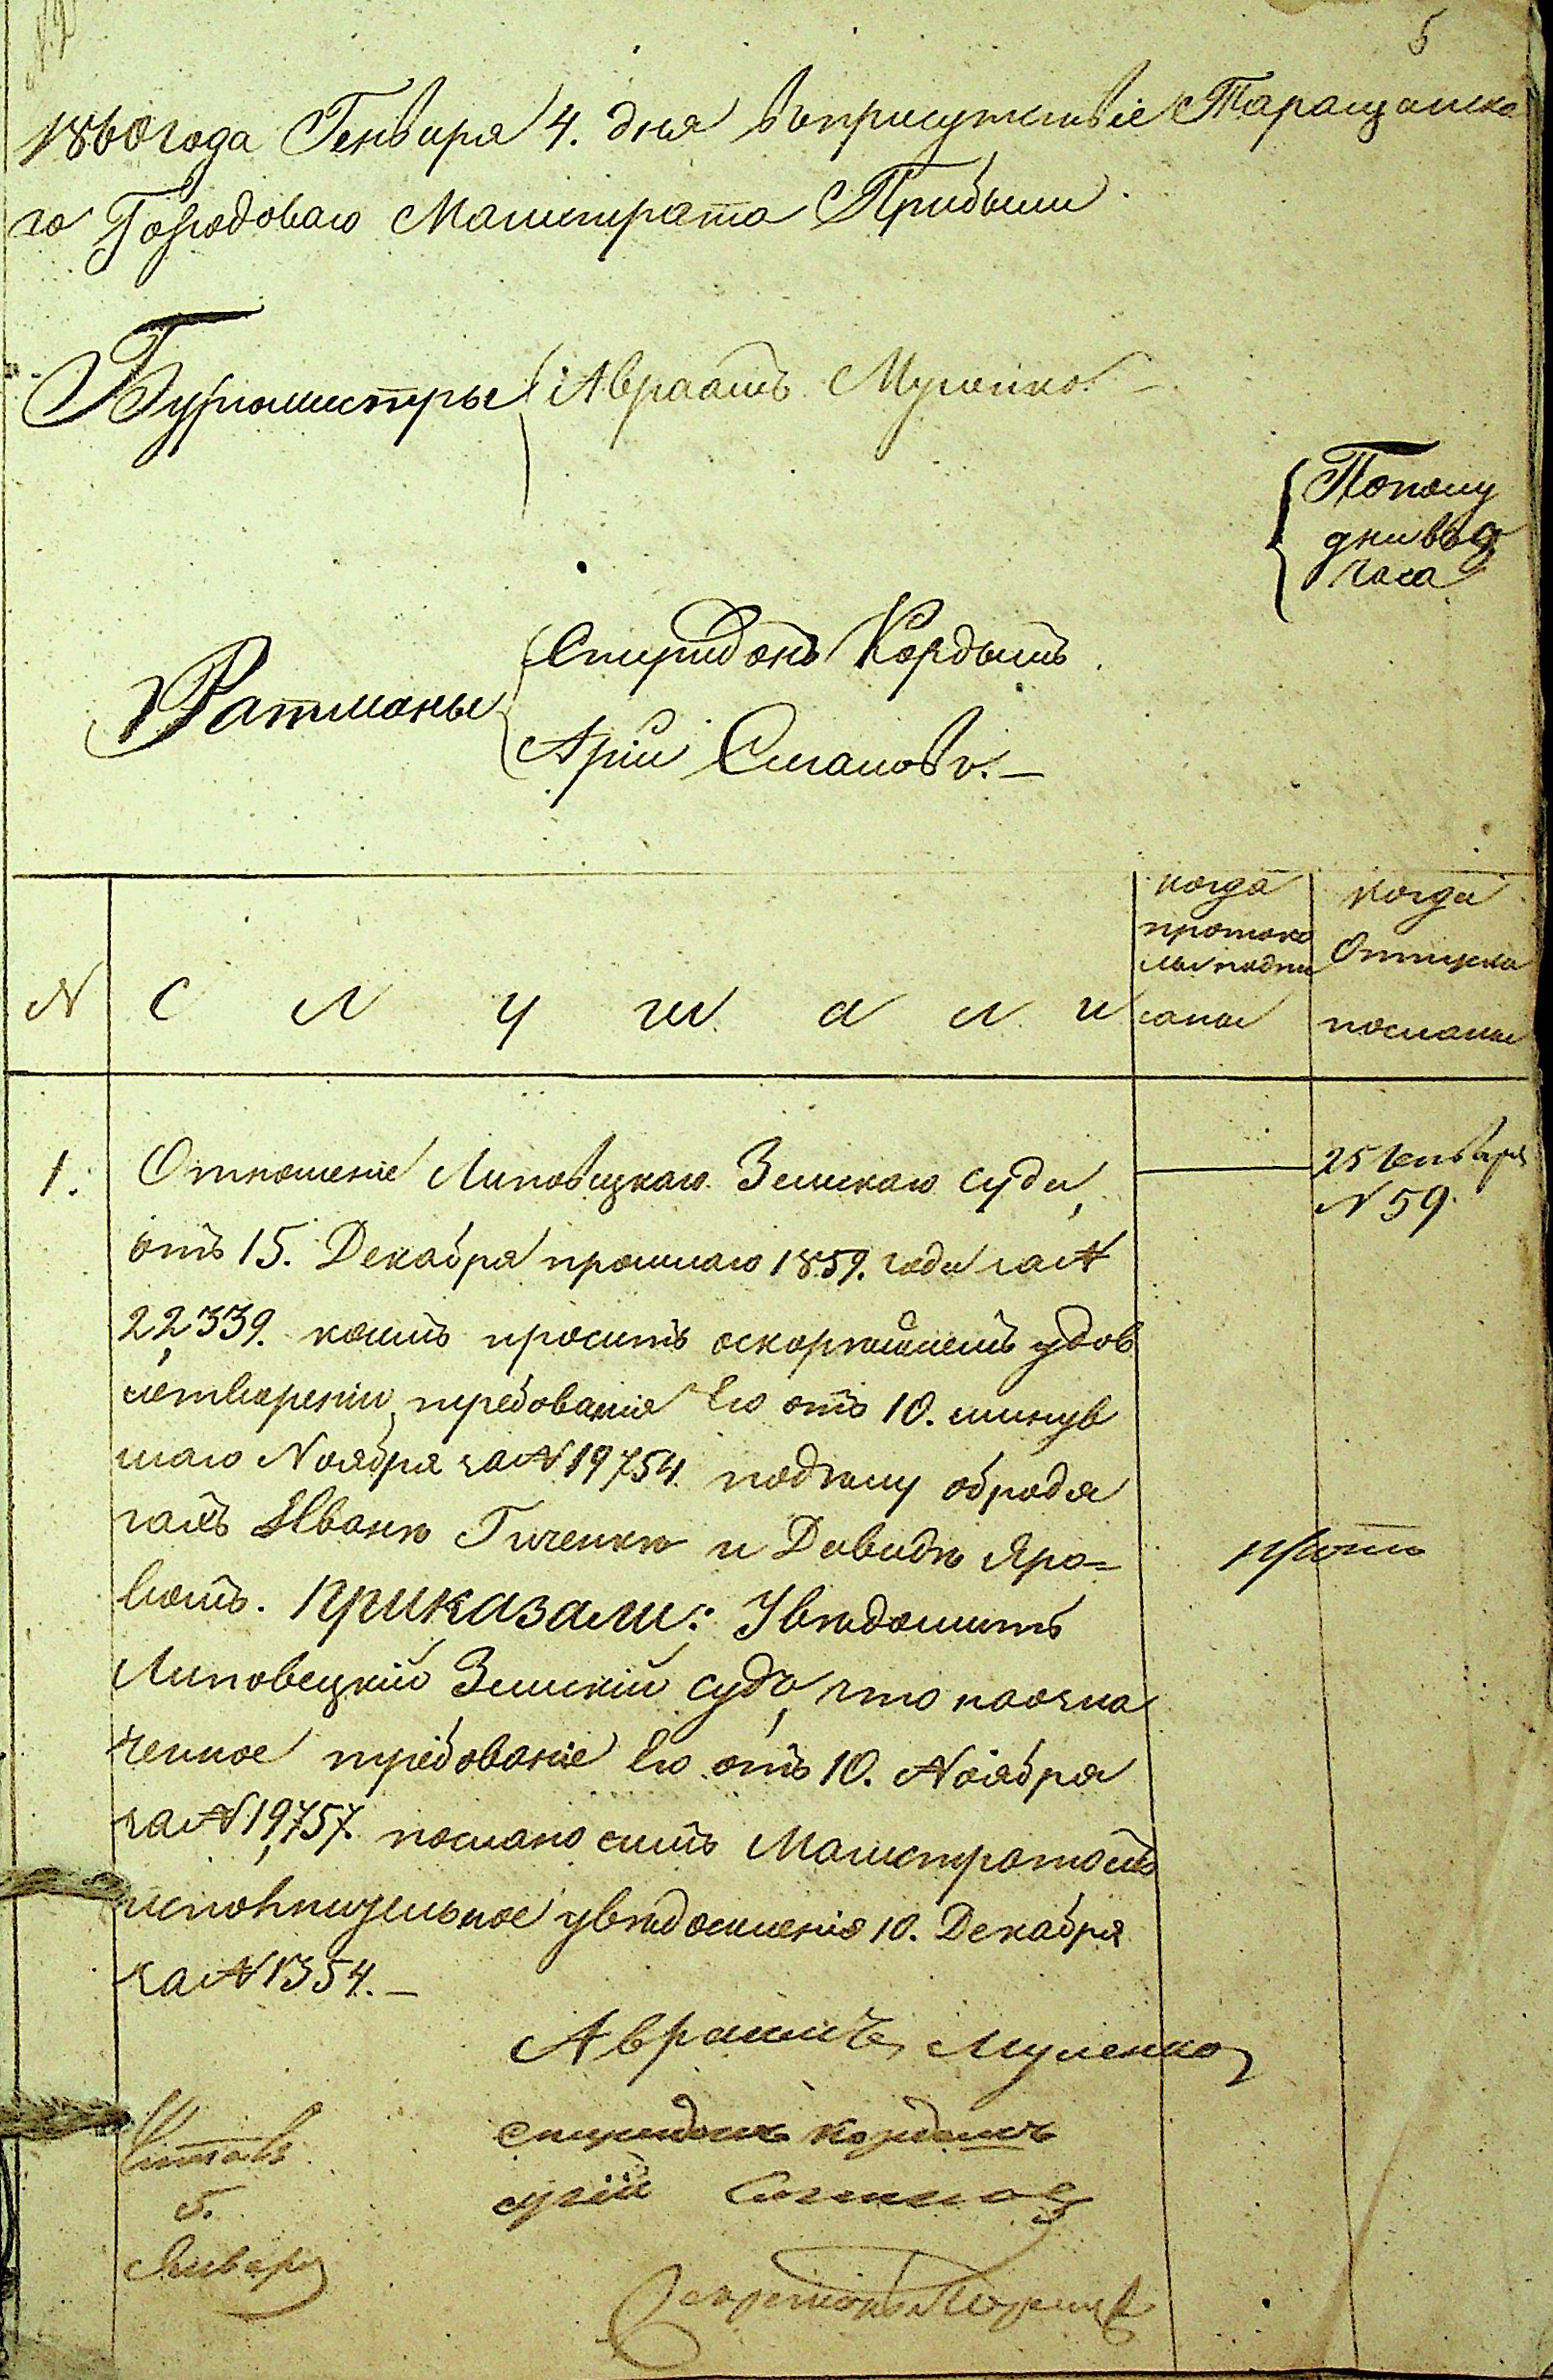 5
1860 года Генваря 4. дня въ присутствіе Таращанска
го Городоваго Магистрата Прибыли
Бургомистры Авраамъ Муленко. —
Попому
дни въ 9
часа
Ратманы
Спиридонъ Кордышъ.
Арій Смаловъ. —
N
С л у ш а л и
когда
протоко
лы подпи
саны
когда
Отпуски
посланы
1.
Отношеніе Липовецкаго Земскаго суда,
отъ 15. Декабря прошлаго 1859. года за N
22,339. коимъ проситъ о скорѣйшемъ удов
летвореніи требованія его отъ 10. минув
шаго Ноября за N 19754. по дѣлу о бродя
гахъ Иванѣ Гиченкѣ и Давидѣ Яро=
вомъ. Приказали: Увѣдомить
Липовецкій Земскій судъ, что на озна
ченное требованіе его отъ 10. Ноября
за N 19,757. послано симъ Магистратомъ
исполнительное увѣдомленіе 10. Декабря
за N 1354. —
25 Генваря
N 59.
Авраамъ Муленко
спиридонъ кордышъ
арій
Читалъ
5.
Января
Секретарь